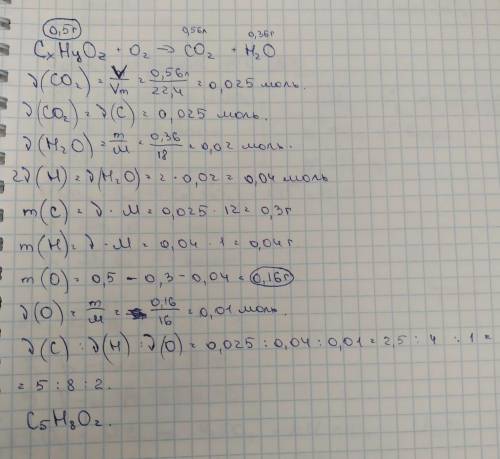 0,5г 0,56л 0,36г
CxHyOz + O2 → CO2 + H2O
ν(CO2) = V/Vm = 0,56л/22,4 = 0,025 моль.
ν(CO2) = ν(C) = 0,025 моль.
ν(H2O) = m/M = 0,36/18 = 0,02 моль.
2ν(H) = ν(H2O) = 2 · 0,02 = 0,04 моль
m(C) = ν · M = 0,025 · 12 = 0,3г
m(H) = ν · M = 0,04 · 1 = 0,04г
m(O) = 0,5 - 0,3 - 0,04 = 0,16г
ν(O) = m/M = 0,16/16 = 0,01 моль.
ν(C) : ν(H) : ν(O) = 0,025 : 0,04 : 0,01 = 2,5 : 4 : 1 =
= 5 : 8 : 2.
C5H8O2.